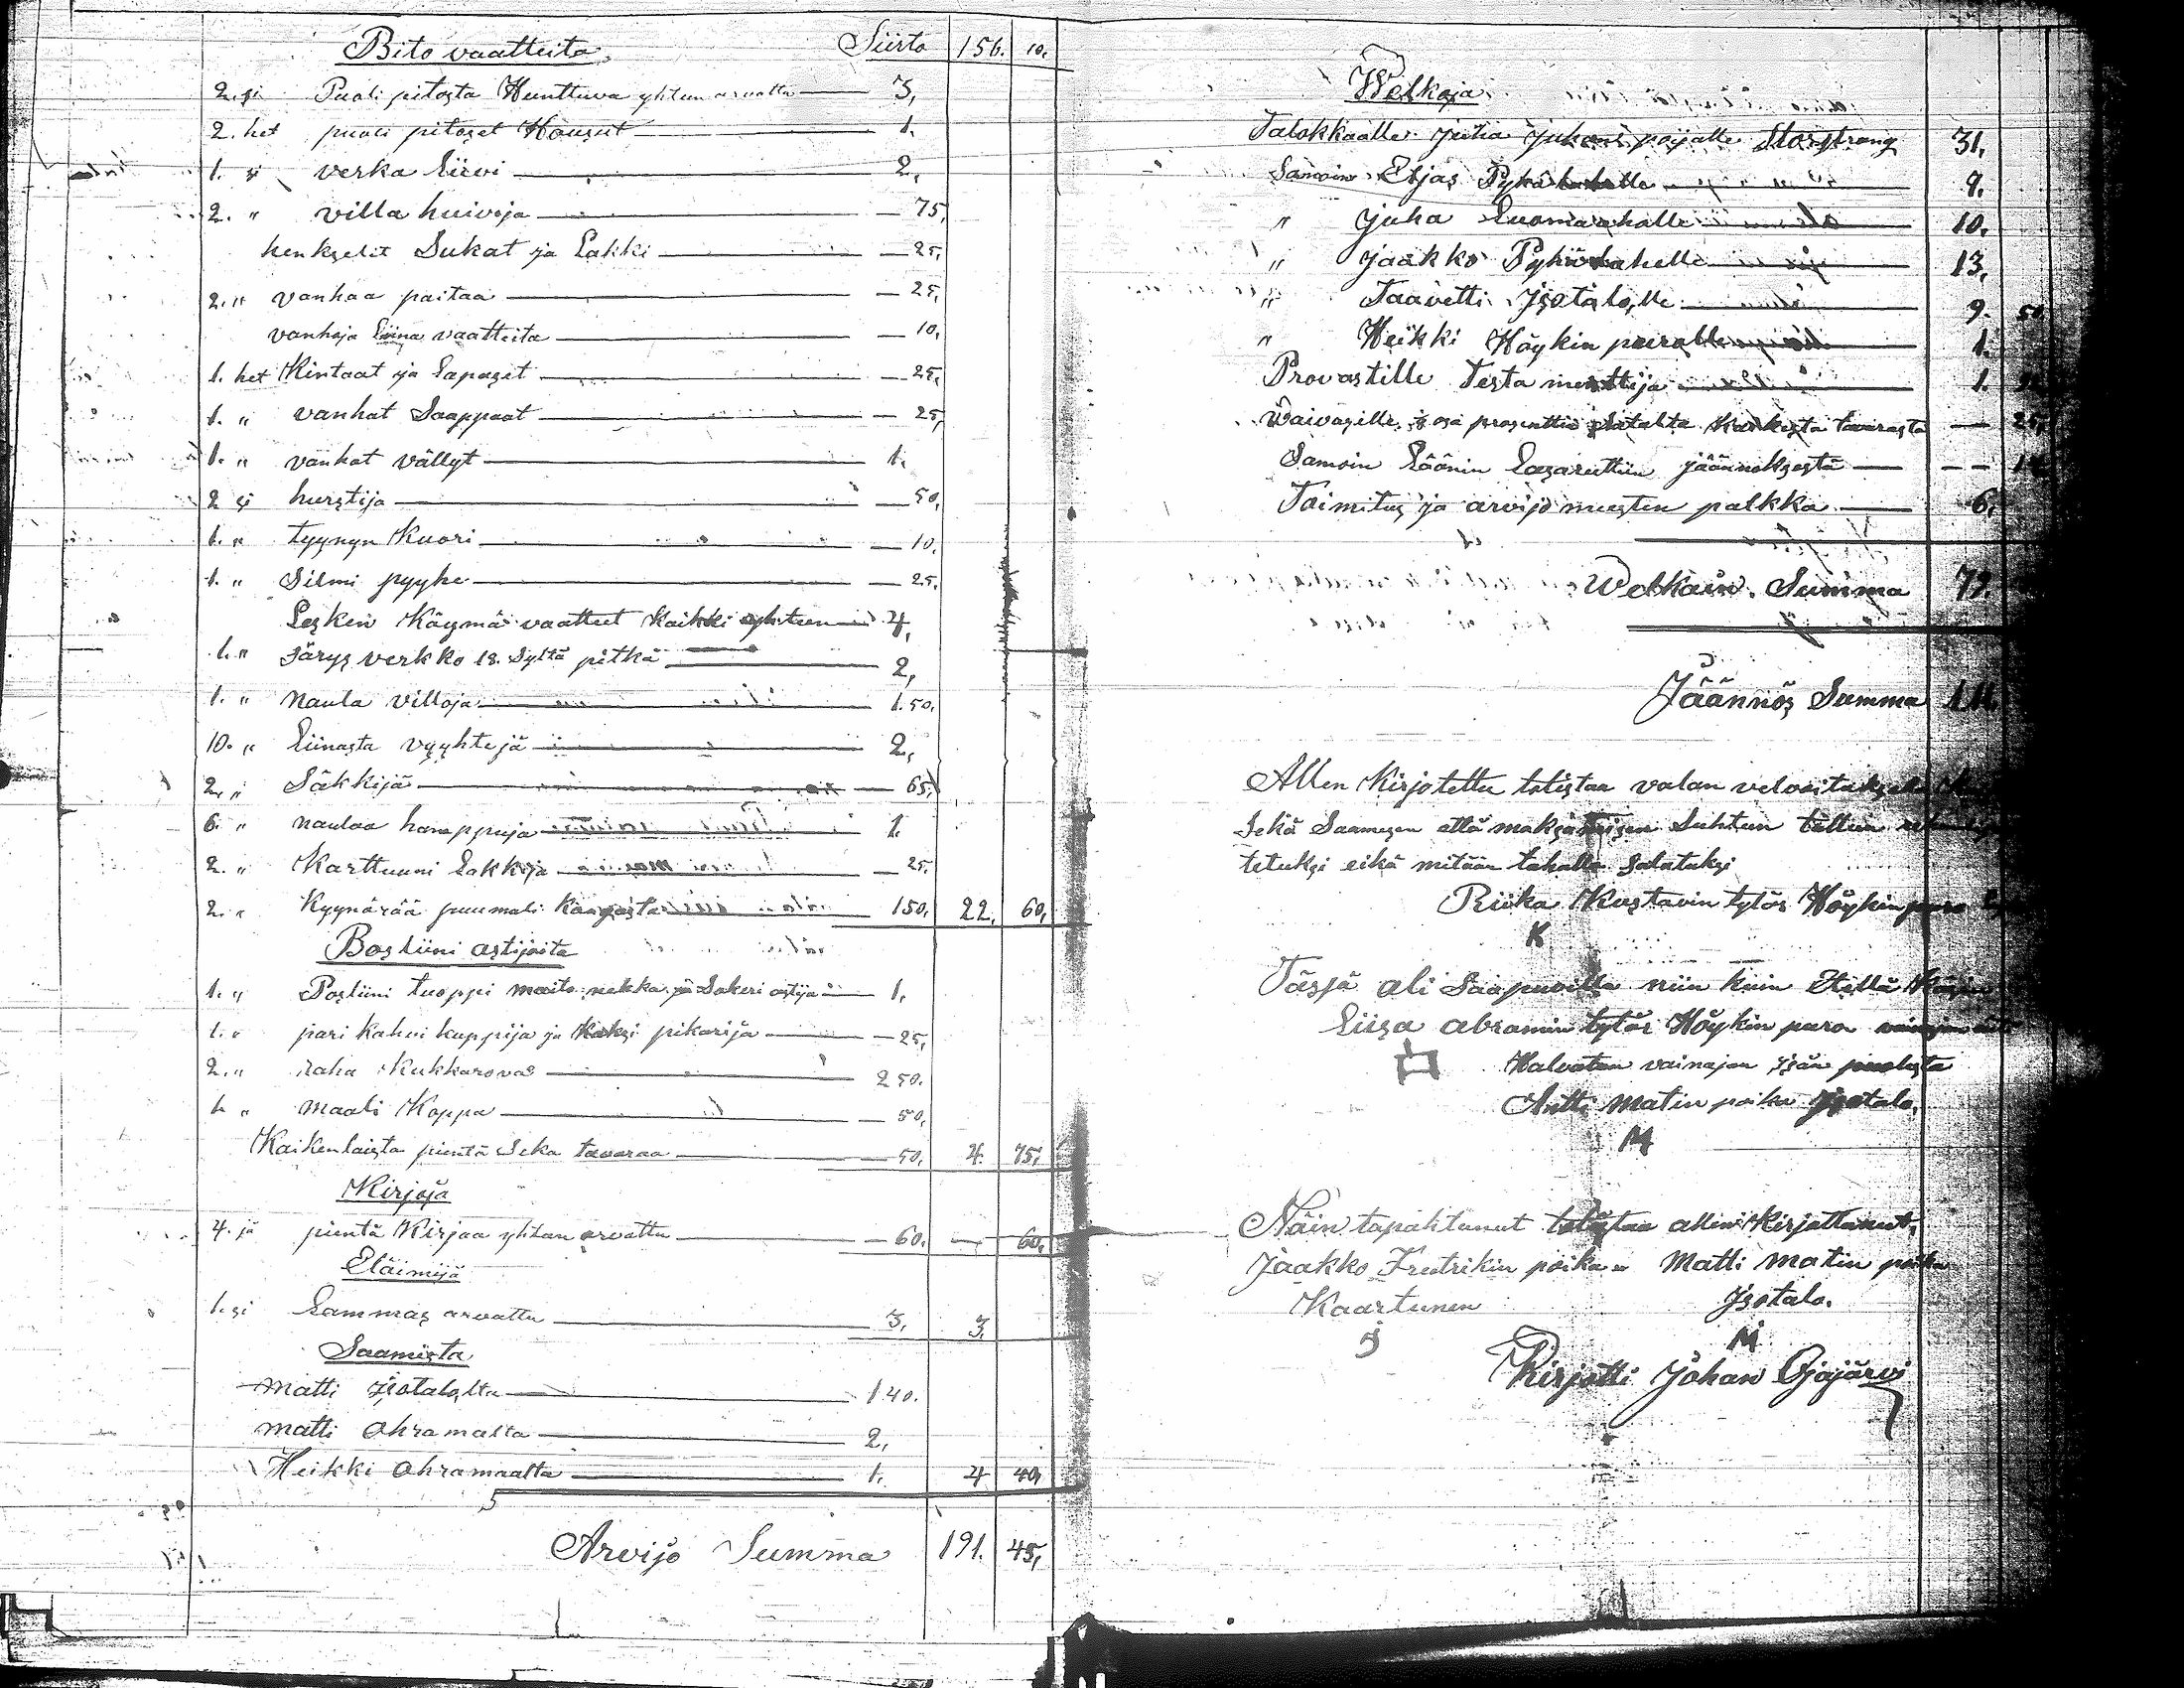 Bito vaatteita Siirto 156. 10.
2. si Puoli pitosta Hunttuva yhteen arvattu 3,
2. het puoli pitoset Housut 1.
1. si verka Liivi 2,
2. " villa huivija 75,
henkselit Sukat ja Lakki 25,
2. " vanhaa paitaa 25,
vanhoja Liina vaatteita 10,
1. het Kintaat ja Lapaset 25,
1. " vanhat Saappaat 25,
1. " vanhat vällyt 1.
2 si hurstija 50,
1. " tyynyn Kuori 10.
1. " Silmi pyyhe 25.
Lesken Käymä vaatteet Kaikki yhteen 4,
1. " Särys verkko 18. Syltä pitkä 2,
1. " Naula villoja 1.50.
10. " Liinasta vyyhtejä 2,
2. " Säkkijä 65,
6. " naulaa hamppuja 1.
2. " Karttuuni Lakkija 25.
2. " Kyynärää puumuli Kangasta 150, 22. 60,
Bosliini astijoita
1. " Posliini tuoppi maito nekka ja Sokeri astija 1,
1. " pari kahvi kuppija ja Kaksi pikarija 25,
2. " raha Kukkarova 2 50.
1. " maali Koppa 50,
Kaikenlaista pientä Seka tavaraa 50, 4. 75,
Kirjoja
4. jä pientä Kirjaa yhteen arvattu 60. 60,
Eläimijä
1. si Lammas arvattu 3, 3,
Saamista
Matti Isotalolta 1 40.
Matti Ohramaalta 2,
Heikki Ohramaalta 1. 4 40,
Arvijo Summa 191. 45,
Welkoja
Talokkaalle Juha Juhani poijalle Storstrang 31,
Samoin Eljas 9.
" Juha Luomarahalle 10.
" Jaakko 13,
" Taavetti Isotalolle 9. 50
" Heikki Höykin puralle 1.
Provastille Testamenttija 1.
Waivasille osa prosenttia Kaikesta tavarasta 25,
Samoin Läänin Lasarettiin jäännöksestä
Toimitus ja arvijo miesten palkka 6,
Welkain Summa 72.
Jäännös Summa
Allen Kirjotettu totistaa valan velvoituksela
Sekä Saamesen että maksamisen Suhteen tulleen
tetuksi eikä mitään tahalla Salatuksi
Riika Kustavin tytär Höykinpura
K
Tässä oli Saapuvilla niin kuin
Liisa abramin tytär Höykin pura
Halvatun vainajan Isän puolesta
Antti Matin poika Isotalo.
M
Näin tapahtunut totistaa allen Kirjottanut,
Jaakko Fredrikin poika Matti Matin poika
Kaartunen Isotalo.
J M
Kirjotti Johan Ojajärvi